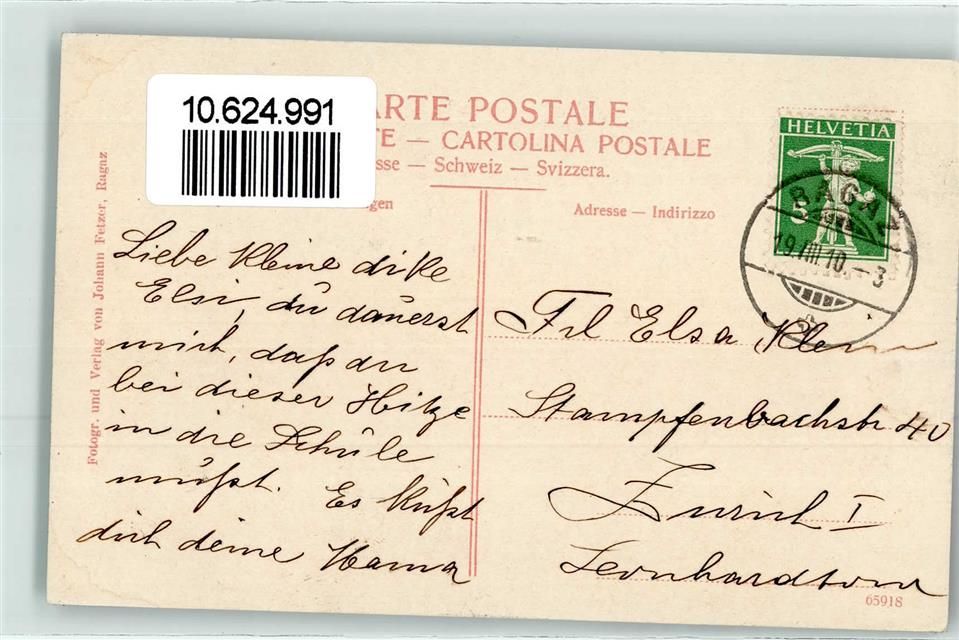 10.624.991
ARTE POSTALE
TE — CARTOLINA POSTALE
sse — Schweiz — Svizzera.
gen
Adresse — Indirizzo
HELVETIA
5
RAGAZ
19.VIII.10.—3
Fotogr. und Verlag von Johann Fetzer, Ragaz
Liebe kleine dike
Elsi, du dauerst
mich, daß du
bei dieser Hitze
in die Schule
mußt. Es küßt
dich deine Mama
Frl Elsa Klein
Stampfenbachstr 40
Zürich I
Leonhardtom
65918